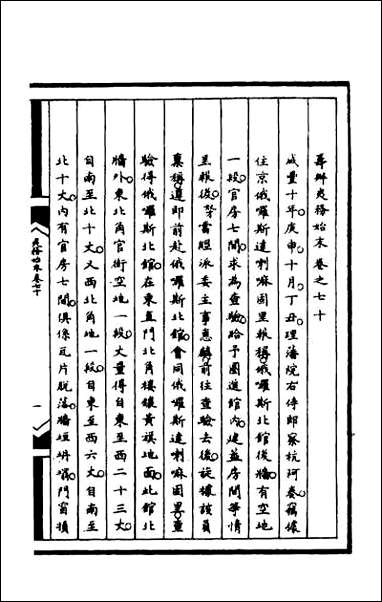 籌辦夷務始末卷之七十
咸豐十年庚申十月丁丑理藩院右侍郎察杭阿奏竊據
住京俄囉斯達喇嘛固里報稱俄囉斯北館後牆有空地
一段官房七間求為查驗給予圈進館內建蓋房間等情
呈報後當經派委主事恩麟前往查驗去後旋據該員
稟稱遵即前赴俄囉斯北館會同俄囉斯達喇嘛固里查
驗得俄囉斯北館在東直門北角樓鑲黃旗地面此館北
牆外東北角官街空地一段丈量得自東至西二十三丈
自南至北十丈又西北角地一段自東至西六丈自南至
北十丈內有官房七間俱係瓦片脫落牆垣坍塌門窗損
夷務始末卷七十
一